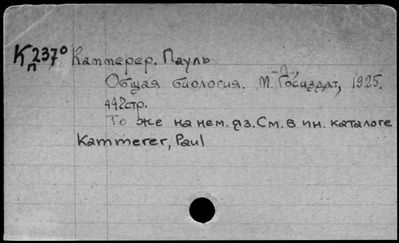 К 237° Каммерер, Пауль
п
Общая биология. М.-Л., Госиздат, 1925.
442стр.
То же на нем. яз. См. в ин. каталоге
Kammerer, Paul